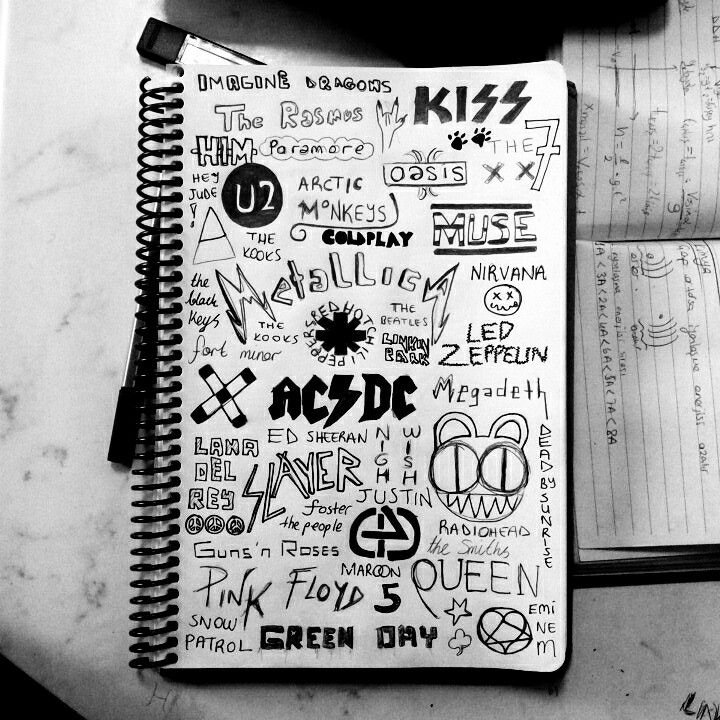 IMAGINE DRAGONS
The Rasmus
KISS
HIM
Paramore
THE 7
HEY
JUDE
U2
ARCTIC
MONKEYS
OASIS
X X
THE
KOOKS
COLDPLAY
MUSE
METALLICA
NIRVANA
the
black
keys
THE
KOOKS
RED HOT CHILI PEPPERS
THE
BEATLES
LINKIN
PARK
LED
ZEPPELIN
fort minor
AC DC
Megadeth
ED SHEERAN
NIGHT
WISH
LANA
DEL
REY
SLAYER
JUSTIN
DEAD BY SUNRISE
foster
the people
RADIOHEAD
the Smiths
GUNS'n ROSES
MAROON
5
QUEEN
PINK FLOYD
SNOW
PATROL
GREEN DAY
EMI
NE
M